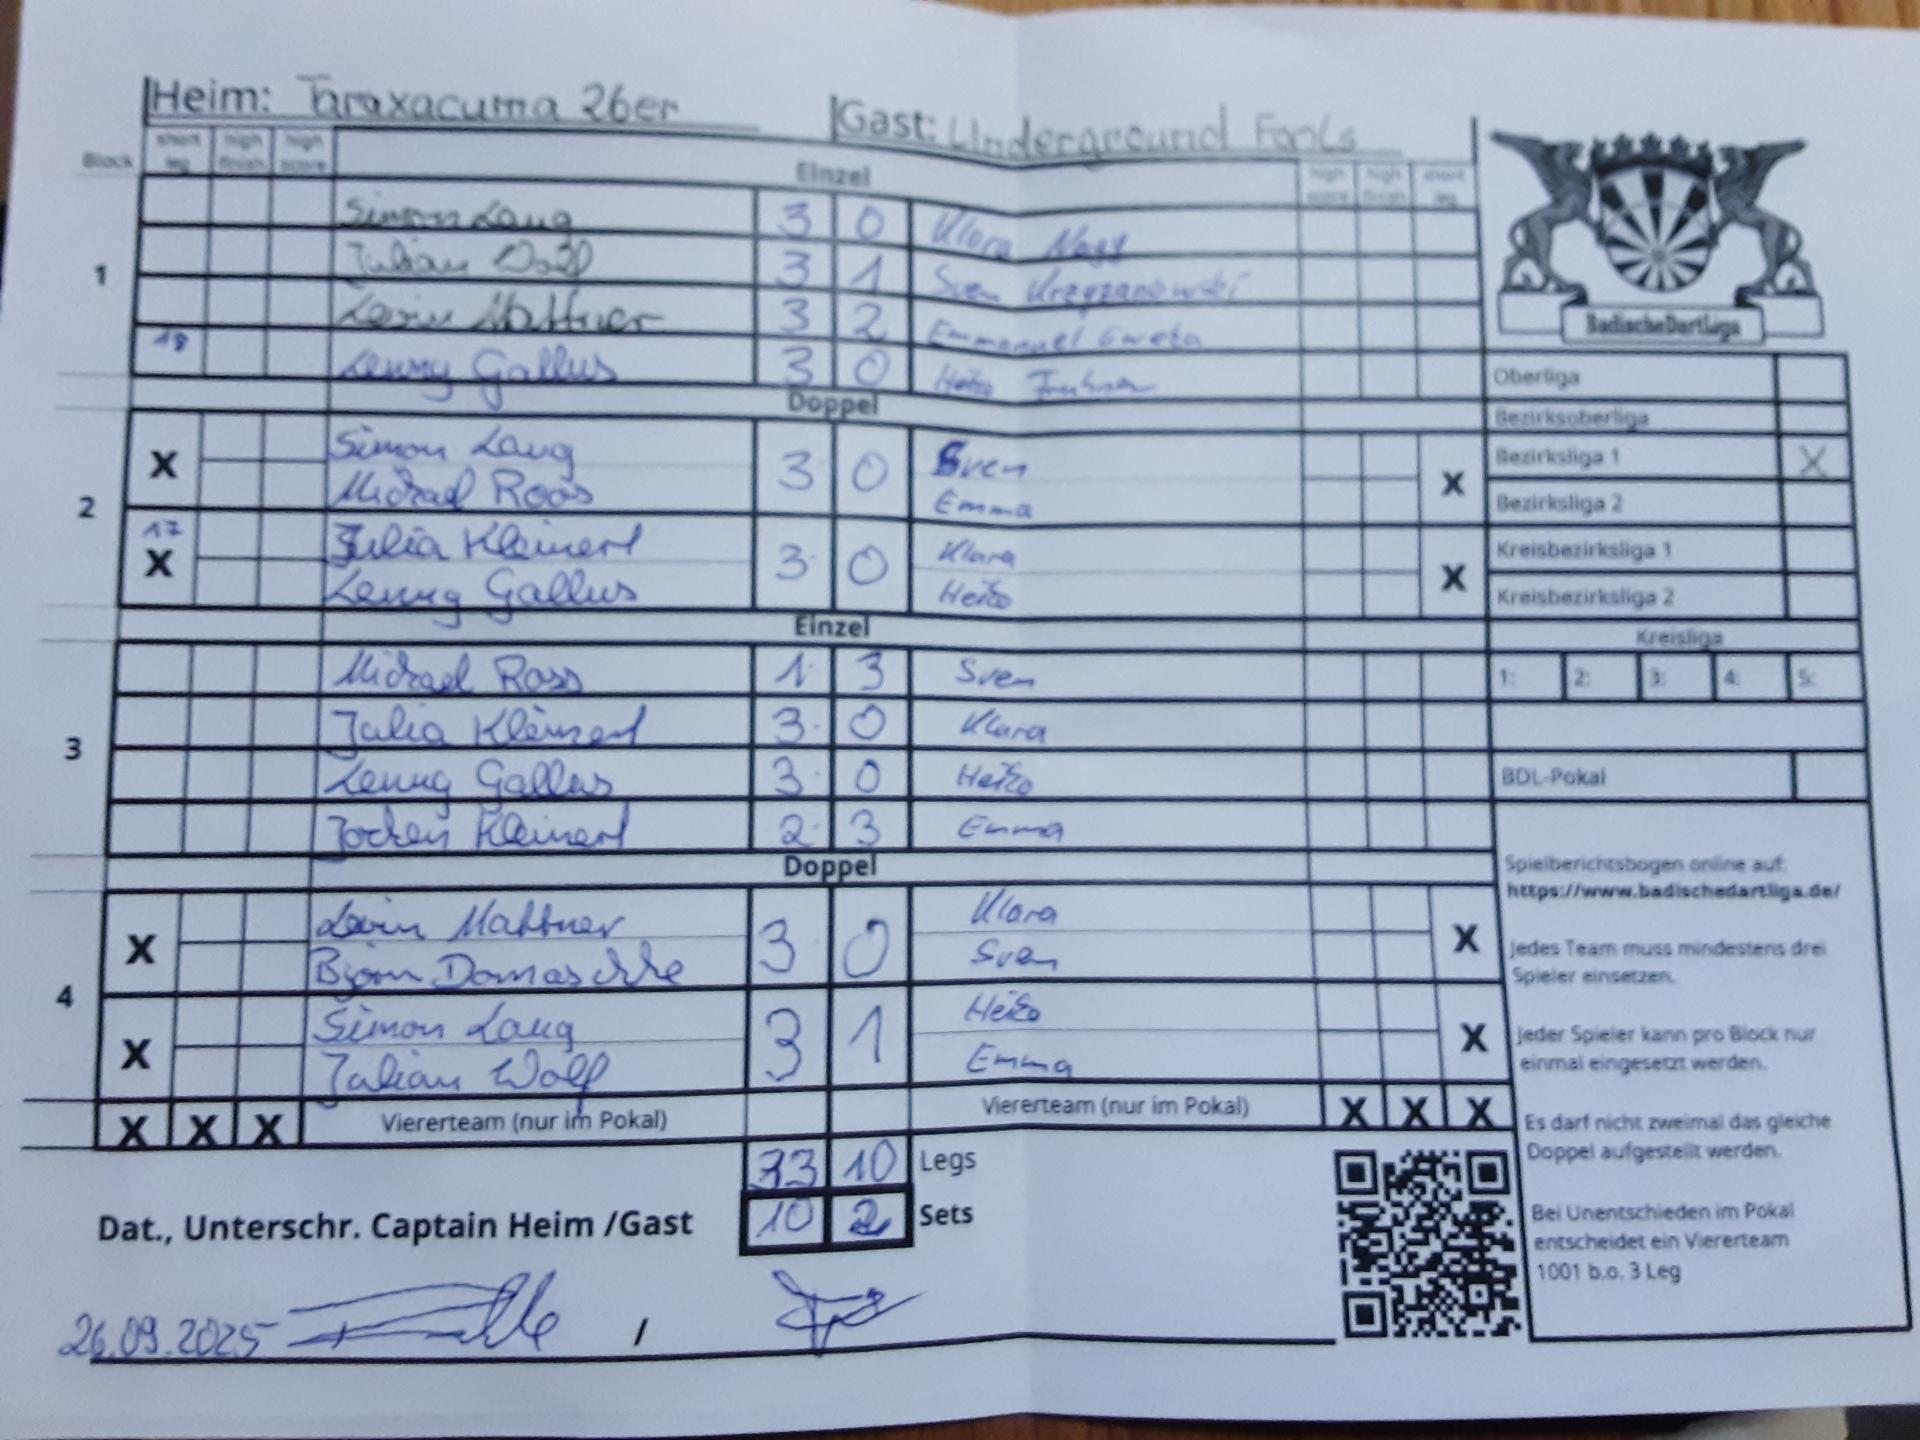 Heim: Taraxacuma 26er Gast: Underground Fools
Block short leg high finish high score Einzel high score high finish short leg
1
Simon Laug 3 0 Klara Nagy
Julian Wolf 3 1 Sven Krzyzanowski
Levin Mattner 3 2 Emmanuel
18 Lenny Gallus 3 0 Heiko
Doppel
2
X Simon Laug 3 0 Sven X
Michael Roos Emma
17 X Julia Kleinert 3 0 Klara X
Lenny Gallus Heiko
Einzel
3
Michael Roos 1 3 Sven
Julia Kleinert 3 0 Klara
Lenny Gallus 3 0 Heiko
Jochen Kleinert 2 3 Emma
Doppel
4
X Levin Mattner 3 0 Klara X
Björn Domaschke Sven
X Simon Laug 3 1 Heiko X
Julian Wolf Emma
X X X Viererteam (nur im Pokal) Viererteam (nur im Pokal) X X X
33 10 Legs
10 2 Sets
Dat., Unterschr. Captain Heim /Gast
26.09.2025 /
BadischeDartLiga
Oberliga
Bezirksoberliga
Bezirksliga 1 X
Bezirksliga 2
Kreisbezirksliga 1
Kreisbezirksliga 2
Kreisliga
1: 2: 3: 4: 5:
BDL-Pokal
Spielberichtsbogen online auf:
https://www.badischedartliga.de/
Jedes Team muss mindestens drei
Spieler einsetzen.
Jeder Spieler kann pro Block nur
einmal eingesetzt werden.
Es darf nicht zweimal das gleiche
Doppel aufgestellt werden.
Bei Unentschieden im Pokal
entscheidet ein Viererteam
1001 b.o. 3 Leg